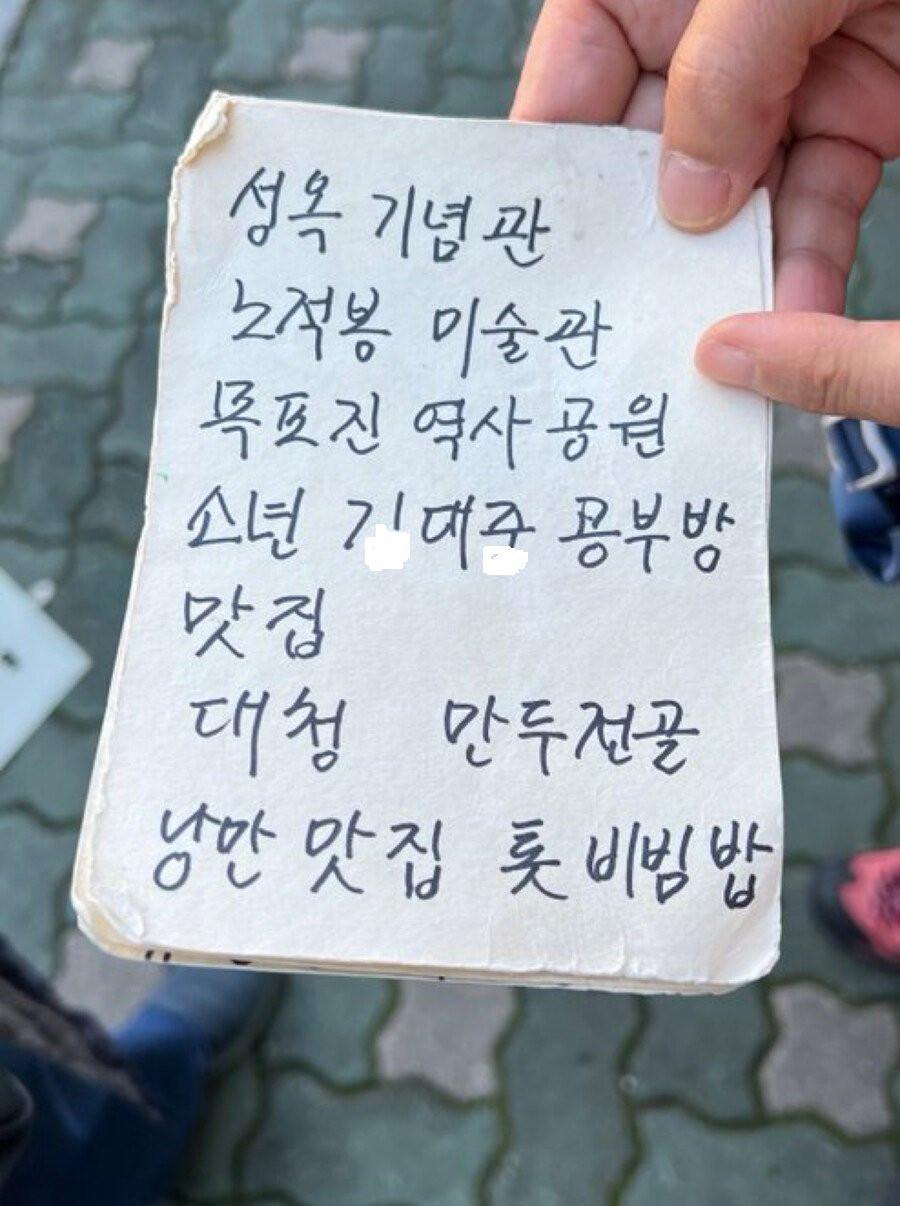 성옥 기념관
노적봉 미술관
목포진 역사 공원
소년 공부방
맛집
대청 만두전골
낭만 맛집 톳 비빔밥